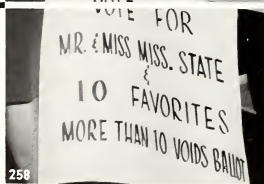 VOTE FOR
MR. & MISS MISS. STATE
&
10 FAVORITES
MORE THAN 10 VOIDS BALLOT
258